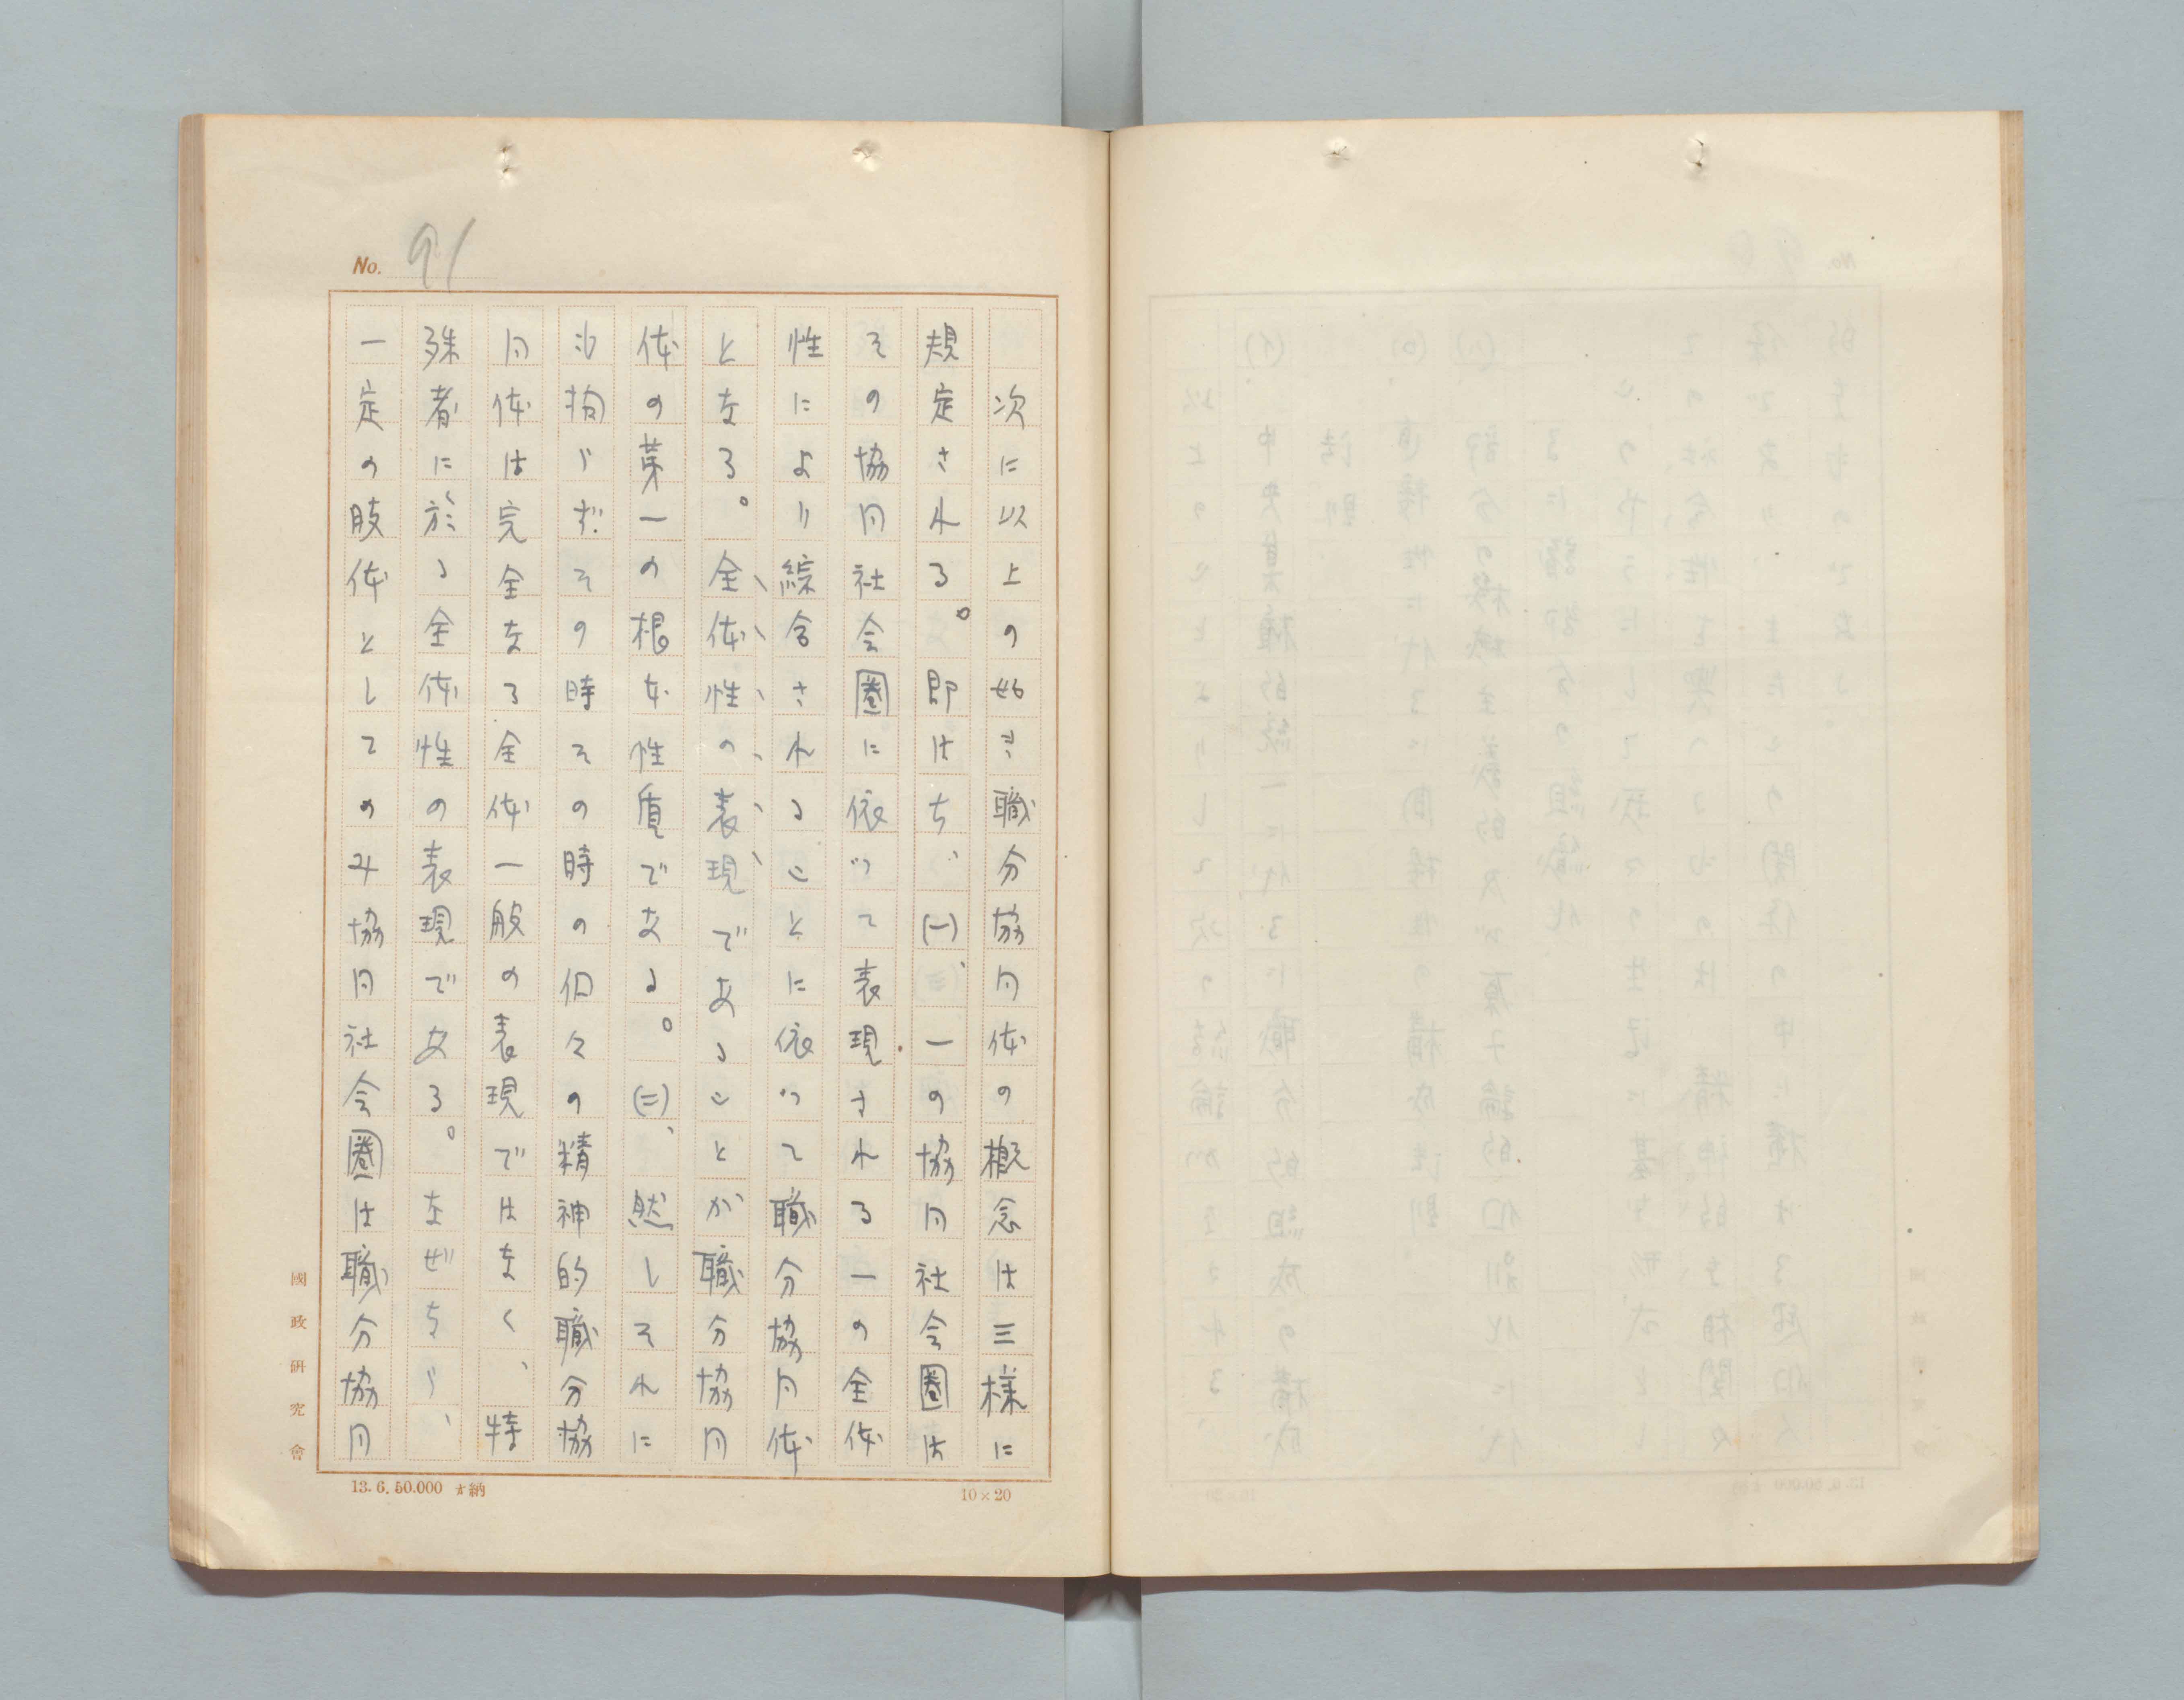 No. 91
次に以上の如き職分協同体の概念は三様に
規定される。即はち、(一)、一の協同社会圏は
その協同社会圏に依つて表現される一の全体
性により綜合されることに依つて職分協同体
となる。全体性の表現であることが職分協同
体の第一の根本性質である。(二)、然しそれに
も拘らずその時その時の個々の精神的職分協
同体は完全なる全体一般の表現ではなく、特
殊者に於る全体性の表現である。なぜなら、
一定の肢体としてのみ協同社会圏は職分協同
國政研究會
13.6.50.000 納
10×20